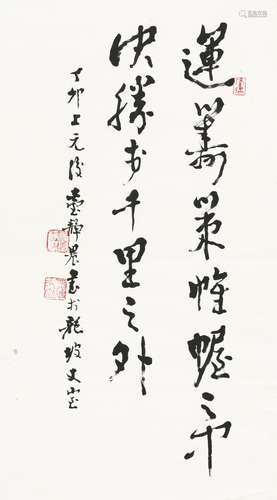 運籌策帷幄之中
決勝於千里之外
丁卯上元後臺靜農書於龍坡丈室